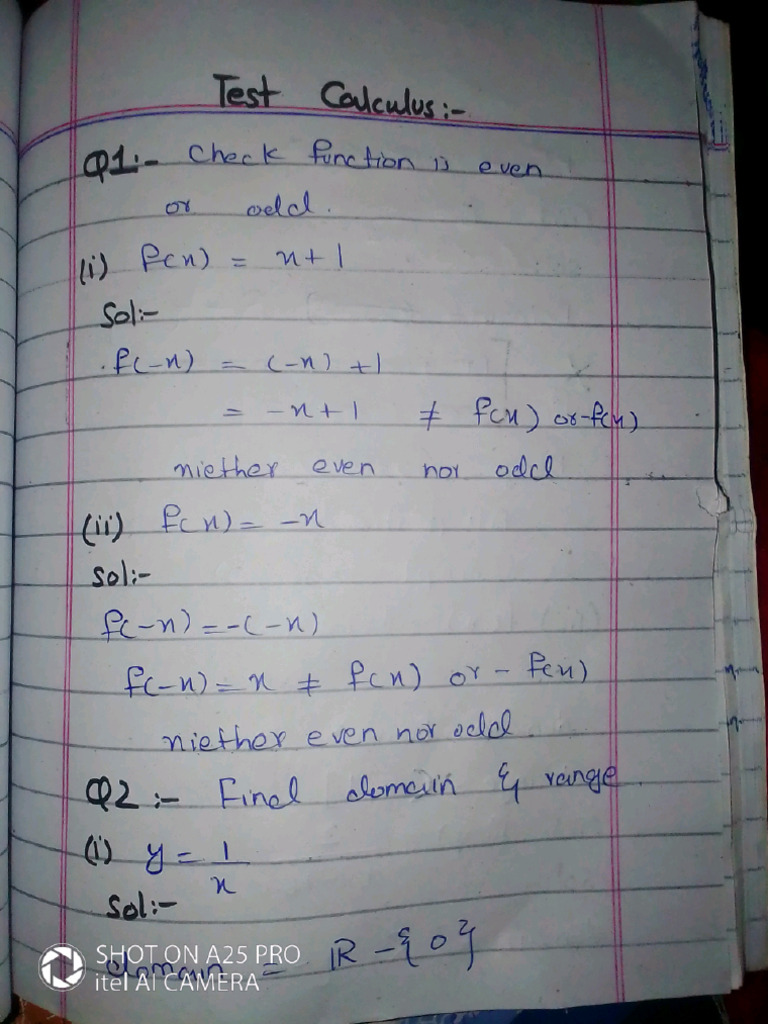 Test Calculus:-
Q1:- Check function is even
or odd.
(i) f(x) = x+1
Sol:-
f(-x) = (-x) +1
= -x+1 ≠ f(x) or -f(x)
niether even nor odd
(ii) f(x) = -x
Sol:-
f(-x) = -(-x)
f(-x) = x ≠ f(x) or - f(x)
niether even nor odd.
Q2:- Find domain & range
(i) y = 1/x
Sol:-
domain = R - {0}
SHOT ON A25 PRO
itel AI CAMERA